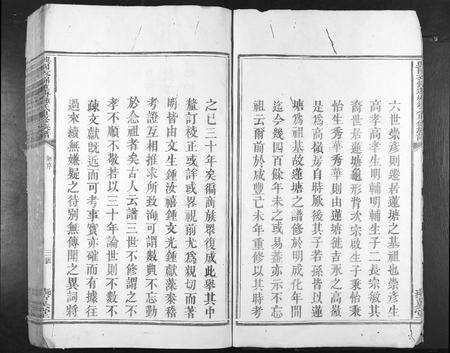 六世崇彥則遷居蓮塘之基祖也崇彥生
高孝高孝生明輔明輔生子二長宗敏其
裔世居蓮塘龜形背次宗啟生子秉怡秉
怡生秀華秀華則由蓮塘徙吉水之高嶺
是為高嶺房自時厥後其子若孫皆以蓮
塘為祖基故蓮塘之譜修於明成化年間
迄今幾四百餘年未之或易蓋亦示不忘
祖云爾前於咸豐己未年重修以其時考
之已三十年矣徧商族眾復成此舉其中
釐訂稜正或詳或畧視前尤為親切而著
明皆由文生鍾汝禧鍾文光鍾獻藻秦稽
考證互相推求所致洵可謂數典不忘勤
於念祖者矣古人云譜三世不修謂之不
孝不順不敬若以三十年論世則不數不
疎文獻既近而可考事實亦確而有據往
過來續無嫌疑之待別無傳聞之異詞將